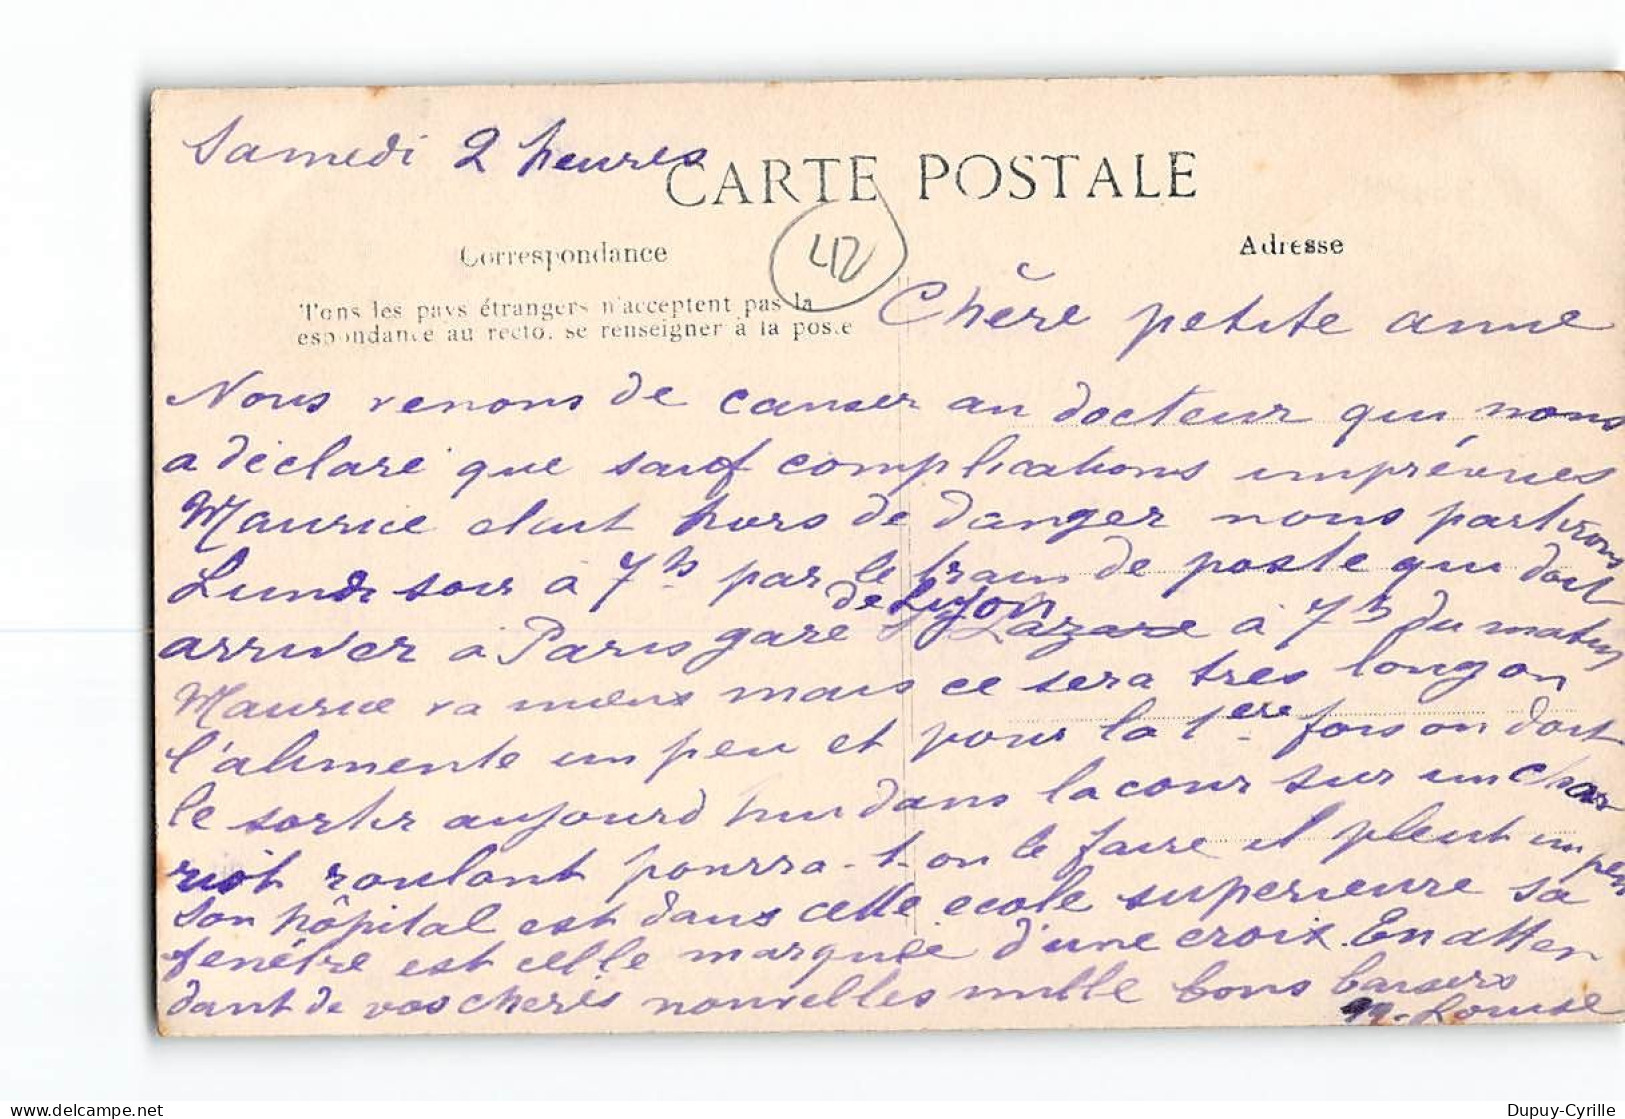 Samedi 2 heures
CARTE POSTALE
42
Correspondance
Adresse
Tous les pays étrangers n'acceptent pas la
espondance au recto, se renseigner à la poste
Chère petite anne
Nous venons de causer au docteur qui nous
a déclaré que sauf complications imprévues
Maurice etait hors de danger nous partirons
Lundi soir à 7hs par le train de poste qui doit
arriver à Paris gare de Lyon Lazare à 7h du matin
Maurice va mieux mais ce sera tres long on
l'alimente un peu et pour la 1ere fois on doit
le sortir aujourd hui dans la cour sur un char
riot roulant pourra-t-on le faire il pleut un peu
son hôpital est dans cette ecole superieure sa
fenêtre est celle marquée d'une croix. En atten
dant de vos cheres nouvelles mille bons baisers
M. Louise
Dupuy-Cyrille